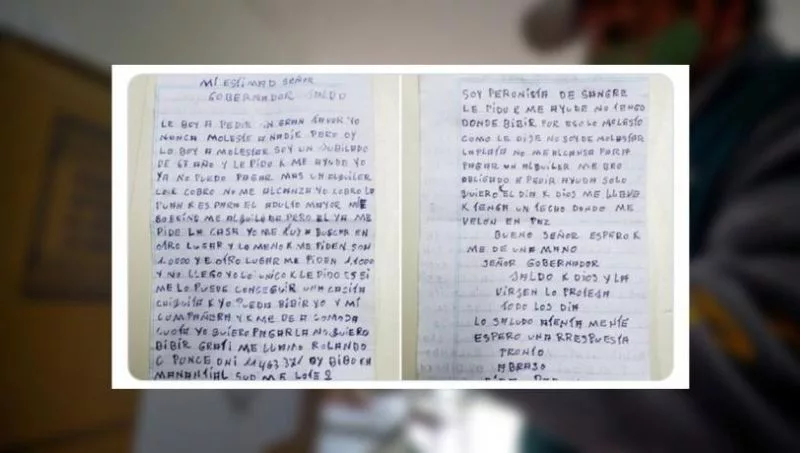 MI ESTIMAD SEÑOR
GOBERNADOR JALDO
LE BOY A PEDIR UN GRAN FAVOR YO
NUNCA MOLESTE A NADIE PERO OY
LO BOY A MOLESTAR SOY UN JUBILADO
DE 67 AÑO Y LE PIDO K ME AYUDE YO
YA NO PUEDO PAGAR MAS UN ALQUILER
LO K COBRO NO ME ALCANZA YO COBRO LA
PUAN K ES PARA EL ADULTO MAYOR MIE
ME ALQUILABA PERO EL YA ME
PIDE LA CASA YO ME A BUSCAR EN
OTRO LUGAR Y LO MENO K ME PIDEN SON
10000 Y E OTRO LUGAR ME PIDEN 11000
Y NO LLEGO YO LO UNICO K LE PIDO ES SI
ME LO PUEDE CONSEGUIR UNA CASITA
CHIQUITA K YO PUEDA BIBIR YO Y MI
COMPAÑERA Y K ME DE A COMODA
CUOTA YO QUIERO PAGARLA NO QUIERO
BIBIR GRATI ME LLAMO ROLANDO
C PONCE DNI OY BIBO EN
MANANTIAL SUD ME LOTE 2
SOY PERONISTA DE SANGRE
LE PIDO K ME AYUDE NO TENGO
DONDE BIBIR POR ESO LO MOLESTO
COMO LE DIJE NO SOY DE MOLESTAR
LA PLATA NO ME ALCANSA PARA
PAGAR UN ALQUILER ME BEO
OBLIGADO A PEDIR AYUDA SOLO
QUIERO EL DIA K DIOS ME LLEVE
K TENGA UN TECHO DONDO ME
VELON EN PAZ
BUENO SEÑOR ESPERO K
ME DE UNA MANO
SEÑOR GOBERNADOR
JALDO K DIOS Y LA
VIRGEN LO PROTEJA
TODO LOS DIA
LO SALUDO ATENTA MENTE
ESPERO UNA RRESPUESTA
PRONTO
ABRASO